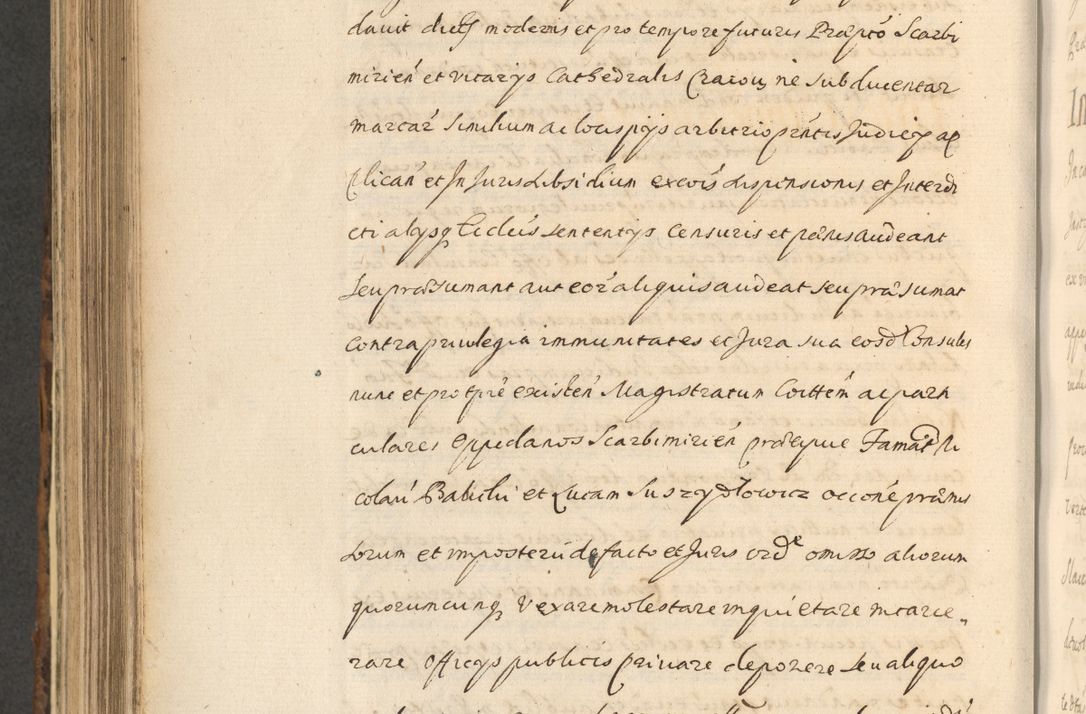 davit dictis modernis et pro tempore futuris Praepto Scarbi
mirien et vicarys Cathedralis Cracou, ne sub ducentar
marcar similium ac locis pijs arbitrio pñtis Judicis ap
plican et In Juris subsidium excois suspensionis et Interdi
cti alysq Eccleis sententys censuris et pænis audeant
seu præsumant aut eor aliquis audeat seu præsumat
contra privilegia immunitates et Jura sua eosd Consules
nunc et pro tpre existen Magistratum Coittem ac parti
culares oppidanos Scarbimirien præcipue Famat Ni
colau Babicki et Lucam Suszydlowicz occone præmis
sorum et imposteru de facto et Juris ord omisso aliorum
quorumcunq vexare molestare inquietare incarce„
rare officys publicis privare deponere seu aliquo